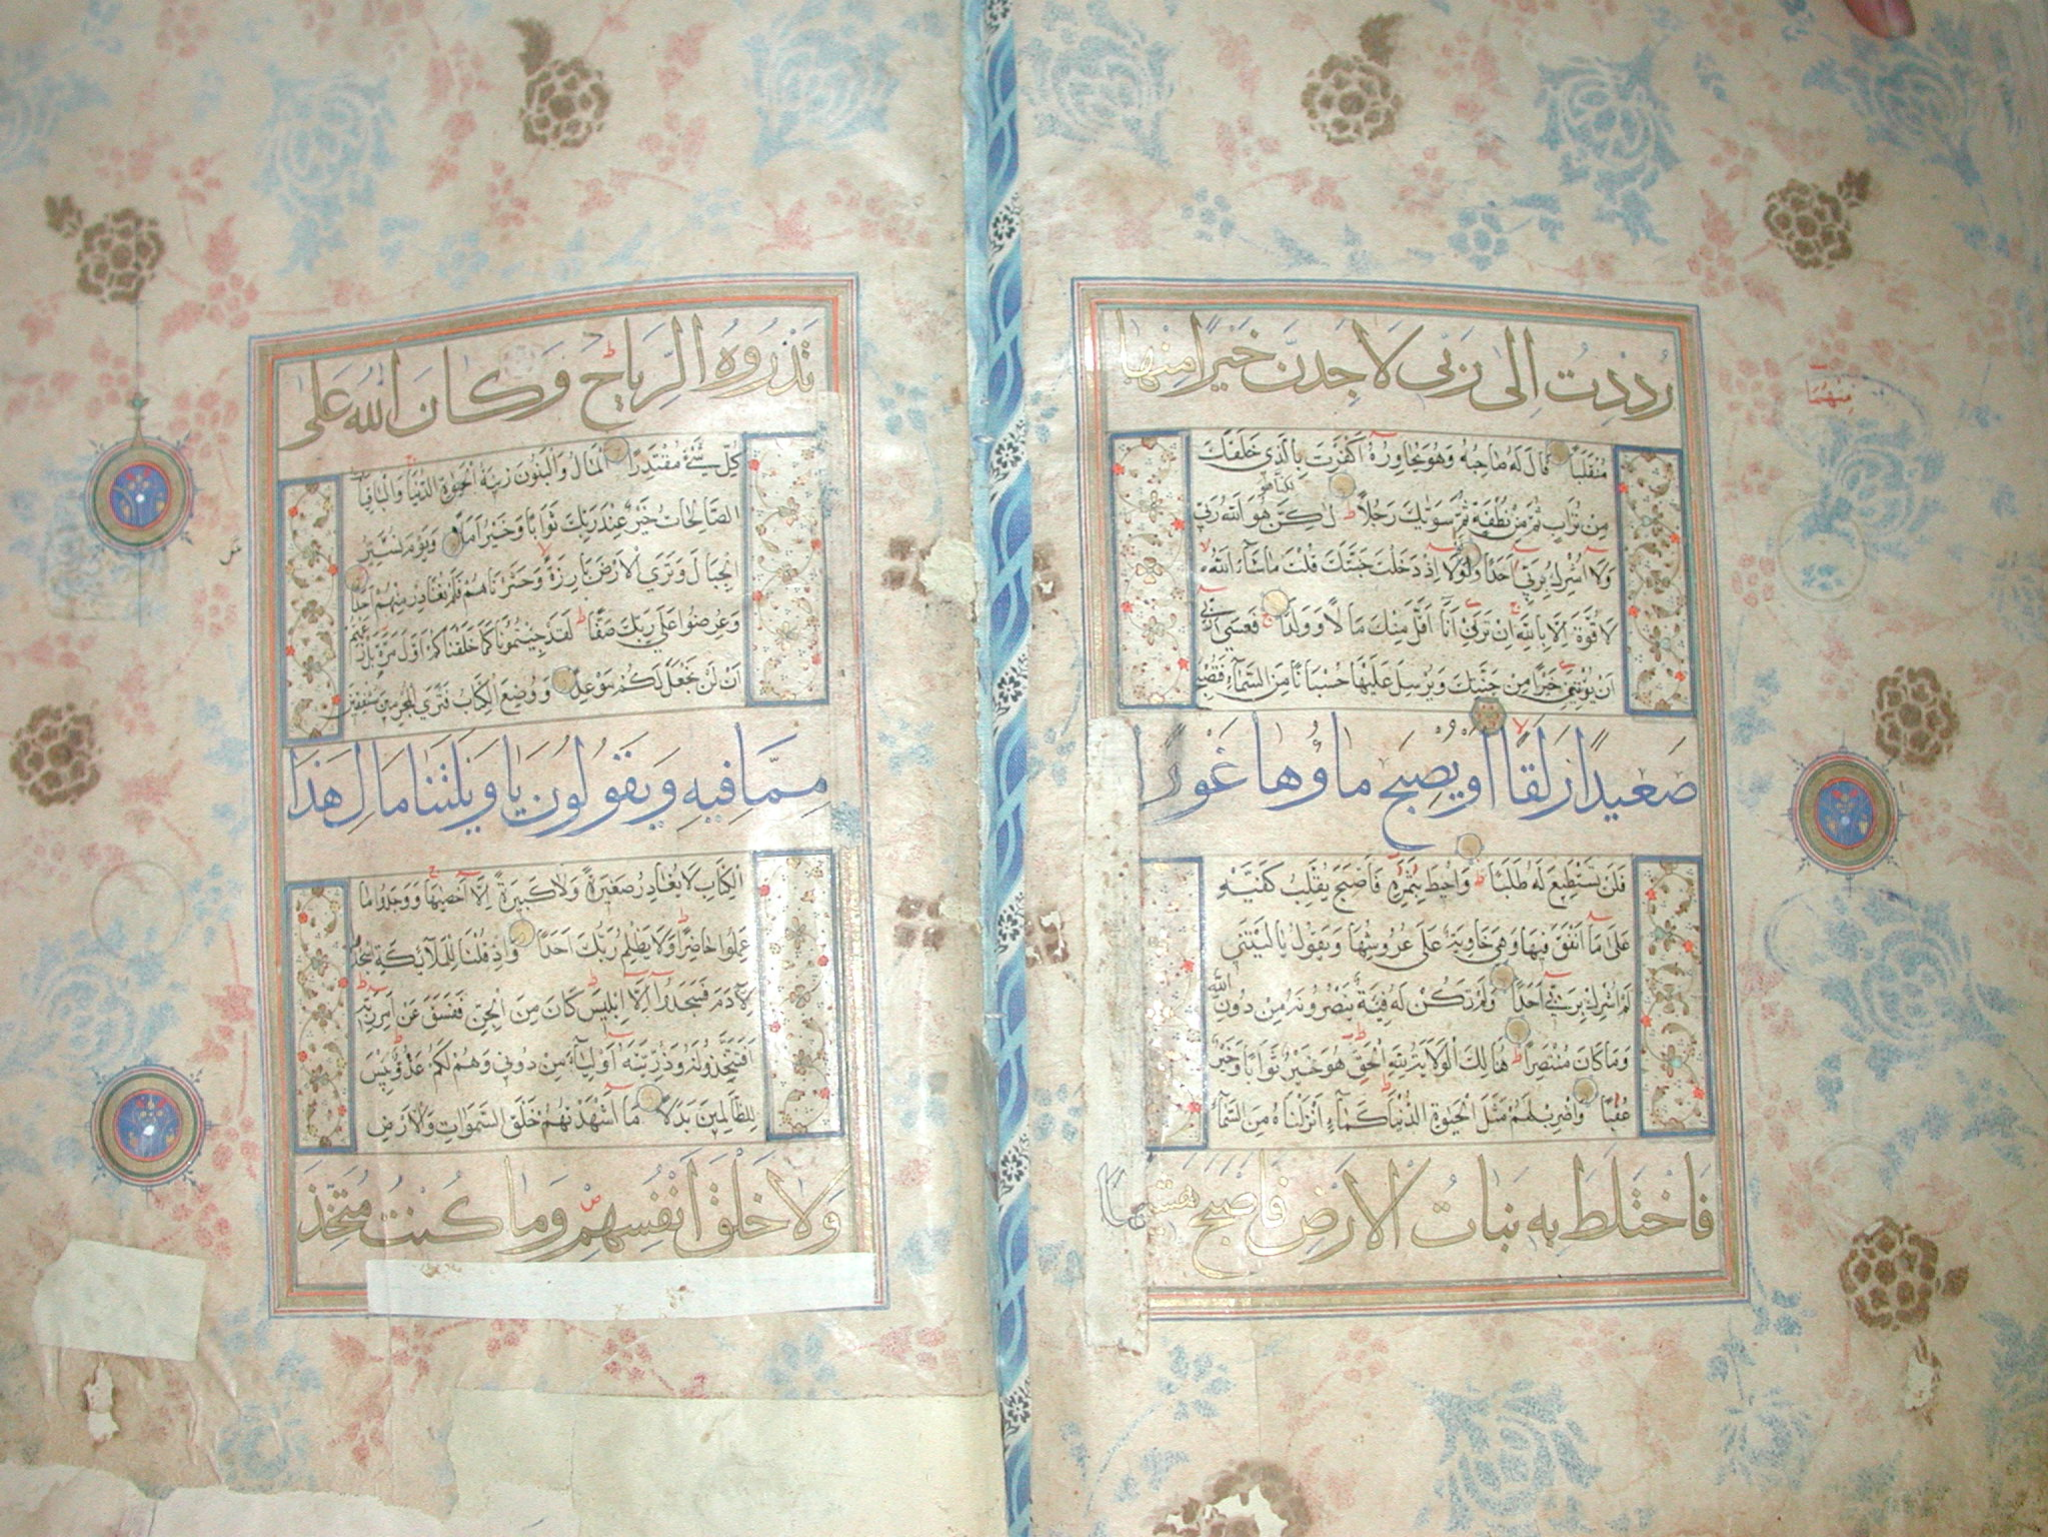 رُدِدْتُ اِلىٰ رَبّى لَاَجِدَنَّ خَيْرًا مِنْهَا
مُنْقَلَبًا قَالَ لَهُ صَاحِبُهُ وَهُوَ يُحَاوِرُهُ اَكَفَرْتَ بِالَّذِى خَلَقَكَ
مِنْ تُرَابٍ ثُمَّ مِنْ نُطْفَةٍ ثُمَّ سَوّٰيكَ رَجُلًا لٰكِنَّ هُوَ اللهُ رَبِّى
وَلَا اُشْرِكُ بِرَبِّى اَحَدًا وَلَوْلَا اِذْ دَخَلْتَ جَنَّتَكَ قُلْتَ مَا شَاءَ اللهُ
لَا قُوَّةَ اِلَّا بِاللهِ اِنْ تَرَنِ اَنَا اَقَلَّ مِنْكَ مَالًا وَوَلَدًا فَعَسىٰ رَبّى
اَنْ يُؤْتِيَنِ خَيْرًا مِنْ جَنَّتِكَ وَيُرْسِلَ عَلَيْهَا حُسْبَانًا مِنَ السَّمَاءِ فَتُصْبِحَ
صَعِيدًا زَلَقًا اَوْ يُصْبِحَ مَاؤُهَا غَوْرًا
فَلَنْ تَسْتَطِيعَ لَهُ طَلَبًا وَاُحِيطَ بِثَمَرِهِ فَاَصْبَحَ يُقَلِّبُ كَفَّيْهِ
عَلىٰ مَا اَنْفَقَ فِيهَا وَهِىَ خَاوِيَةٌ عَلىٰ عُرُوشِهَا وَيَقُولُ يَا لَيْتَنِى
لَمْ اُشْرِكْ بِرَبِّى اَحَدًا وَلَمْ تَكُنْ لَهُ فِئَةٌ يَنْصُرُونَهُ مِنْ دُونِ اللهِ
وَمَا كَانَ مُنْتَصِرًا هُنَالِكَ الْوَلَايَةُ لِلهِ الْحَقِّ هُوَ خَيْرٌ ثَوَابًا وَخَيْرٌ
عُقْبًا وَاضْرِبْ لَهُمْ مَثَلَ الْحَيٰوةِ الدُّنْيَا كَمَاءٍ اَنْزَلْنَاهُ مِنَ السَّمَاءِ
فَاخْتَلَطَ بِهِ نَبَاتُ الْاَرْضِ فَاَصْبَحَ هَشِيمًا
مِنْهُمَا
تَذْرُوهُ الرِّيَاحُ وَكَانَ اللهُ عَلىٰ
كُلِّ شَىْءٍ مُقْتَدِرًا اَلْمَالُ وَالْبَنُونَ زِينَةُ الْحَيٰوةِ الدُّنْيَا وَالْبَاقِيَاتُ
الصَّالِحَاتُ خَيْرٌ عِنْدَ رَبِّكَ ثَوَابًا وَخَيْرٌ اَمَلًا وَيَوْمَ نُسَيِّرُ
الْجِبَالَ وَتَرَى الْاَرْضَ بَارِزَةً وَحَشَرْنَاهُمْ فَلَمْ نُغَادِرْ مِنْهُمْ اَحَدًا
وَعُرِضُوا عَلىٰ رَبِّكَ صَفًّا لَقَدْ جِئْتُمُونَا كَمَا خَلَقْنَاكُمْ اَوَّلَ مَرَّةٍ بَلْ زَعَمْتُمْ
اَنْ لَنْ نَجْعَلَ لَكُمْ مَوْعِدًا وَوُضِعَ الْكِتَابُ فَتَرَى الْمُجْرِمِينَ مُشْفِقِينَ
مِمَّا فِيهِ وَيَقُولُونَ يَا وَيْلَتَنَا مَالِ هٰذَا
الْكِتَابِ لَا يُغَادِرُ صَغِيرَةً وَلَا كَبِيرَةً اِلَّا اَحْصٰيهَا وَوَجَدُوا مَا
عَمِلُوا حَاضِرًا وَلَا يَظْلِمُ رَبُّكَ اَحَدًا وَاِذْ قُلْنَا لِلْمَلَائِكَةِ اسْجُدُوا
لِاٰدَمَ فَسَجَدُوا اِلَّا اِبْلِيسَ كَانَ مِنَ الْجِنِّ فَفَسَقَ عَنْ اَمْرِ رَبِّهِ
اَفَتَتَّخِذُونَهُ وَذُرِّيَّتَهُ اَوْلِيَاءَ مِنْ دُونِى وَهُمْ لَكُمْ عَدُوٌّ بِئْسَ
لِلظَّالِمِينَ بَدَلًا مَا اَشْهَدْتُهُمْ خَلْقَ السَّمٰوَاتِ وَالْاَرْضِ
وَلَا خَلْقَ اَنْفُسِهِمْ وَمَا كُنْتُ مُتَّخِذَ